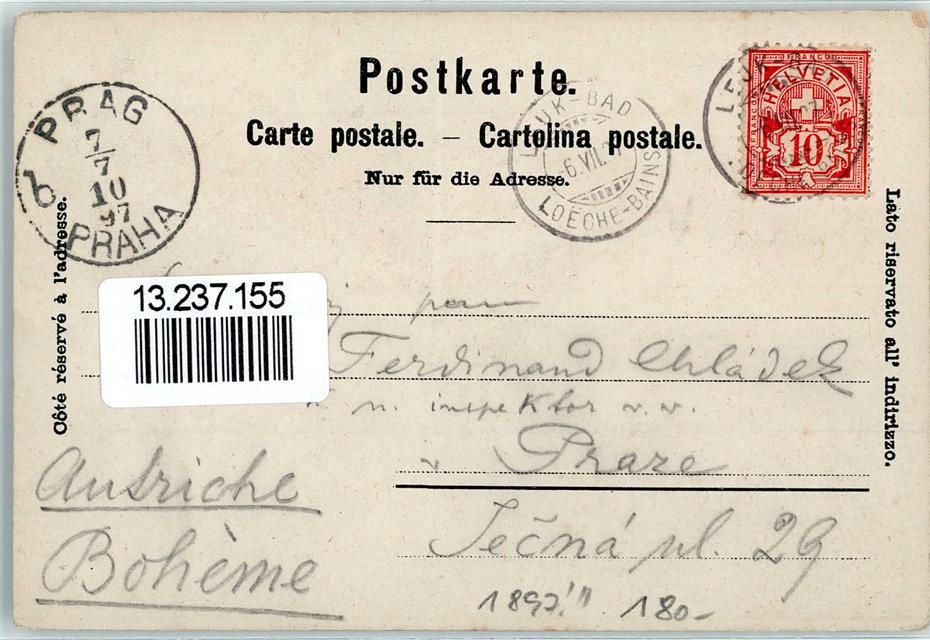 Postkarte.
Carte postale. – Cartolina postale.
Nur für die Adresse.
Côté réservé à l'adresse.
Lato riservato all' indirizzo.
PRAG
7/7
10
97
PRAHA
b
LEUK-BAD
6.VII.97
LOËCHE-BAINS
FRANCO
HELVETIA
FRANCO
10
13.237.155
pan
Ferdinand Chládek
inspektor v. v.
v Praze
Ječná ul. 29
Autriche
Bohème
1897!!! 180-